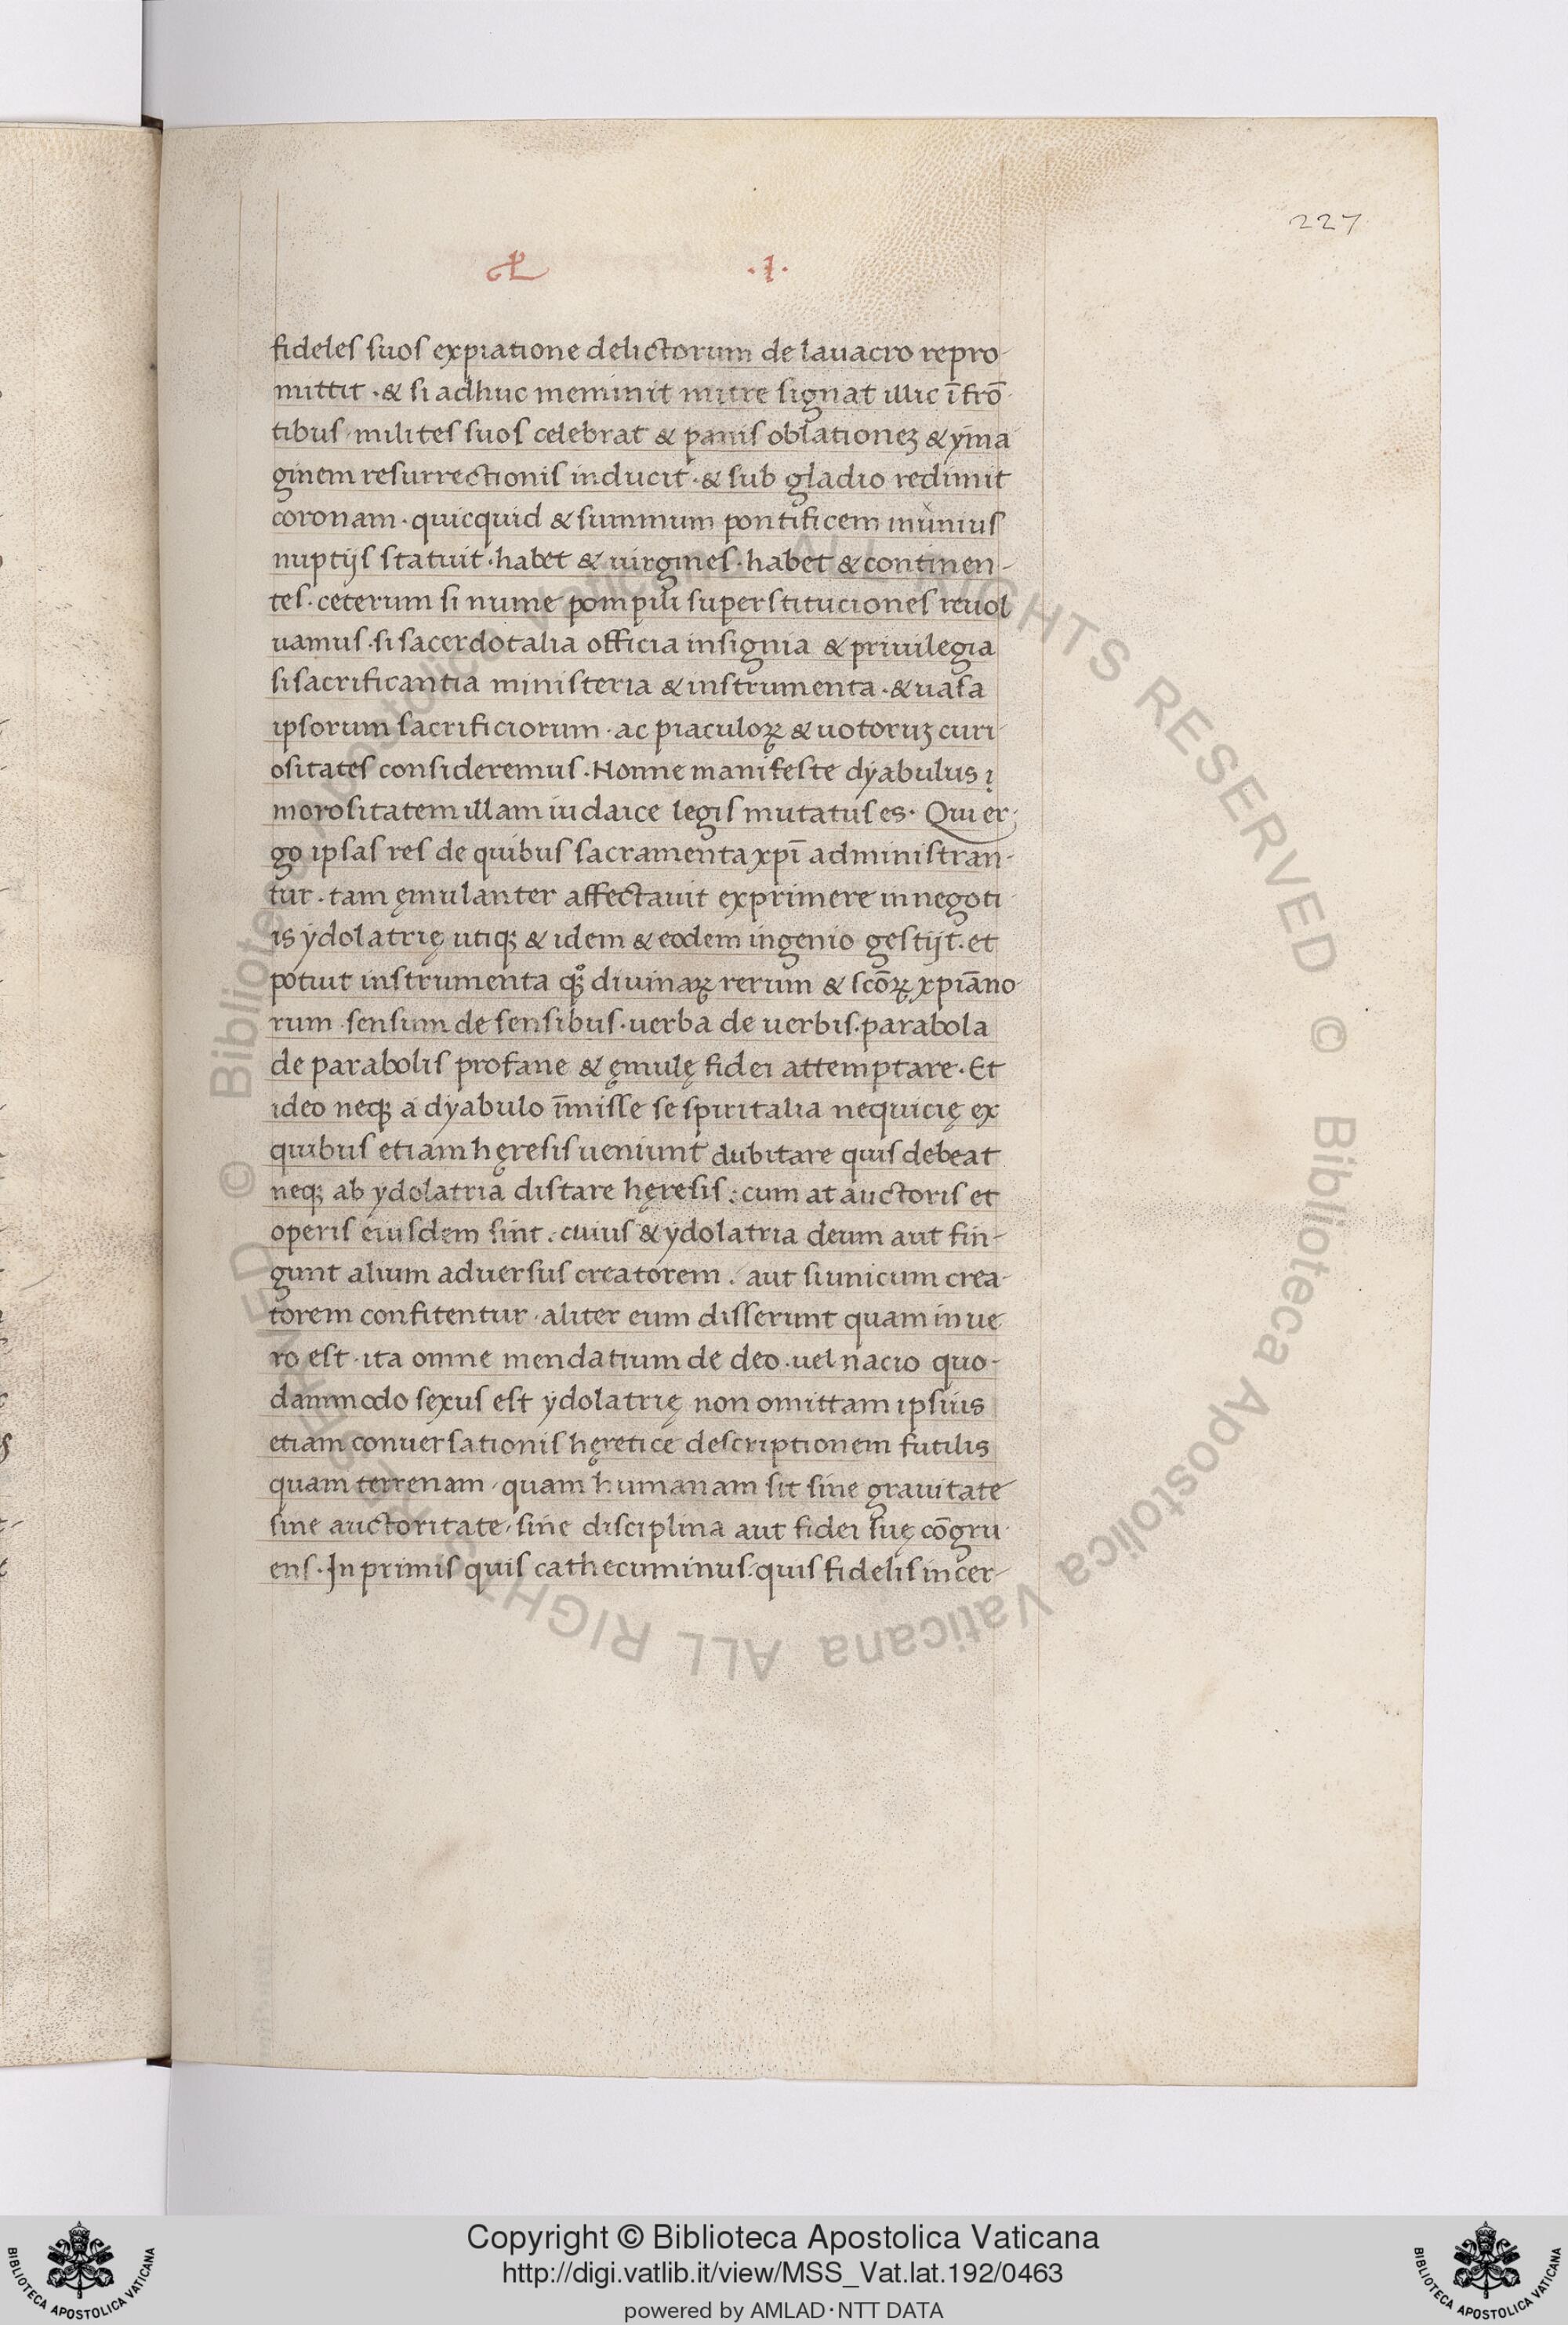 227
.I.
fideles suos expiatione delictorum de lauacro repro-
mittit · & si adhuc meminit mitre signat illic ī frō-
tibus · milites suos celebrat & panis oblationeꝫ & yma
ginem resurrectionis inducit · & sub gladio redimit
coronam · quicquid & summum pontificem in unius
nuptijs statuit · habet & uirgines · habet & continen-
tes · ceterum si nume pompilii superstituciones reuol
uamus · si sacerdotalia officia insignia & priuilegia
si sacrificantia ministeria & instrumenta · & uasa
ipsorum sacrificiorum · ac piaculoꝝ & uotoruꝫ curi-
ositates consideremus · Nonne manifeste dyabulus i
morositatem illam iudaice legis mutatus es · Qui er-
go ipsas res de quibus sacramenta xp̄i administran-
tur · tam ęmulanter affectauit exprimere in negoti
is ydolatrię utiqꝫ & idem & eodem ingenio gestijt · et
potuit instrumenta qꝫ diuinaꝝ rerum & scōꝝ xpiāno-
rum · sensum de sensibus · uerba de uerbis · parabola
de parabolis profane & ęmulę fidei attemptare · Et
ideo neqꝫ a dyabulo īmisse se spiritalia nequicię ex
quibus etiam hęresis ueniunt dubitare quis debeat
neqꝫ ab ydolatria distare hęresis : cum at auctoris et
operis eiusdem sint : cuius & ydolatria deum aut fin-
gunt alium aduersus creatorem . aut si unicum crea-
torem confitentur · aliter eum disserunt quam in ue
ro est · ita omne mendatium de deo · uel nacio quo-
dammodo sexus est ydolatrię non omittam ipsius
etiam conuersationis hęretice descriptionem futilis
quam terrenam · quam humanam sit sine grauitate
sine auctoritate · sine disciplina aut fidei suę cōgru-
ens · In primis quis cathecuminus : quis fidelis incer-
© Biblioteca Apostolica Vaticana ALL RIGHTS RESERVED © Biblioteca Apostolica Vaticana ALL RIGHTS RESERVED
Copyright © Biblioteca Apostolica Vaticana
http://digi.vatlib.it/view/MSS_Vat.lat.192/0463
powered by AMLAD·NTT DATA
BIBLIOTECA APOSTOLICA VATICANA
BIBLIOTECA APOSTOLICA VATICANA